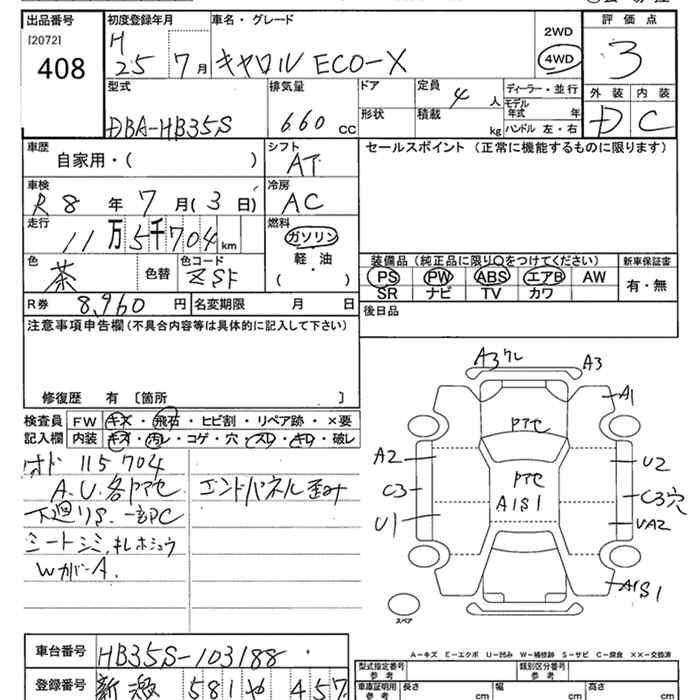 出品番号 初度登録年月 車名・グレード 2WD 評価点
[2072] H
408 25 7月 キャロル ECO-X 4WD 3
型式 排気量 ドア 定員 4 人 ディーラー・並行 外装 内装
DBA-HB35S 660 CC 形状 積載 kg モデル年式 年 D C
ハンドル 左・右
車歴 シフト セールスポイント (正常に機能するものに限ります)
自家用・( ) AT
車検 冷房
R 8 年 7 月(3日) AC
走行 燃料
11万5千704km ガソリン
軽油
・
( )
色 色替 色コード 装備品 (純正品に限り○をつけてください) 新車保証書
茶 ZSF PS PW ABS エアB AW 有・無
SR ナビ TV カワ
R券 8,960円 名変期限 月 日 後日品
注意事項申告欄 (不具合内容等は具体的に記入して下さい)
修復歴 有 〔箇所 〕
検査員 FW キズ・飛石・ヒビ割・リペア跡・×要
記入欄 内装 キズ・汚レ・コゲ・穴・スレ・キレ・破レ
オド 115704
A.U.各アセ エンドパネル歪み
下廻りS.
シートシミ,キレホシュウ
WガバーA.
A3ワレ A3
A1
アセ
A2 U2
アセ
C3 A1S1 C3穴
U1 UA2
A1S1
スペア
A-キズ E-エクボ U-凹み W-補修跡 S-サビ C-腐食 ××-交換済
車台番号 HB35S-103188 型式指定番号 参考 類別区分番号 参考
登録番号 新潟 581 や 457 車庫証明用 参考 長さ cm 幅 cm 高さ cm